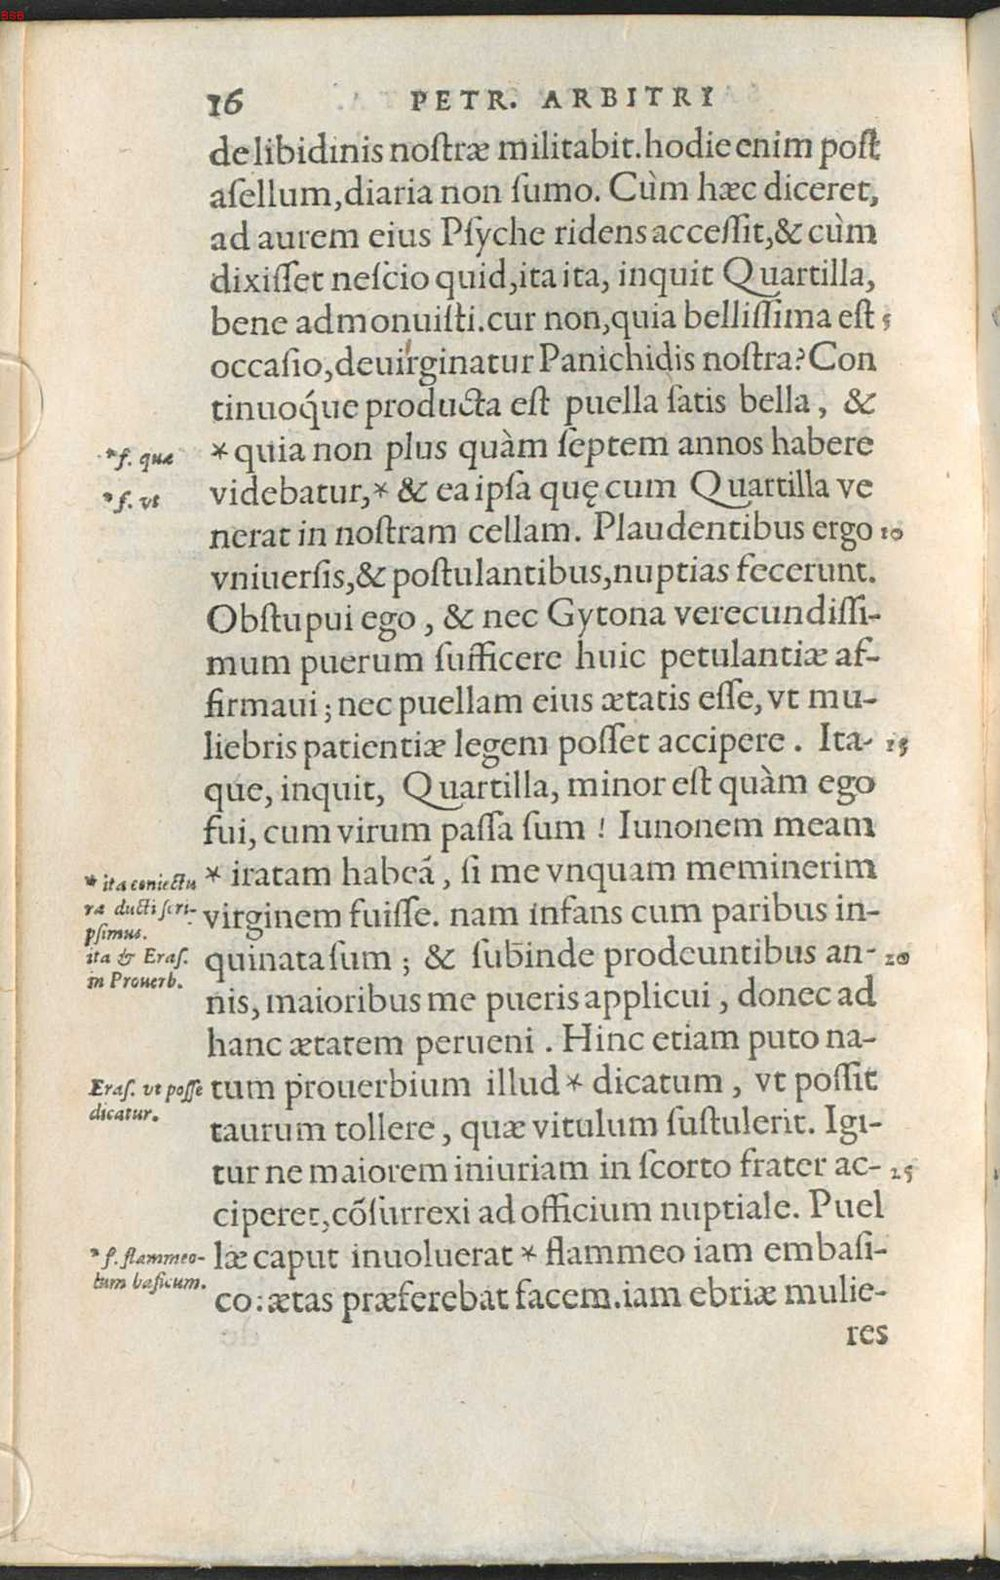 BSB
16 PETR. ARBITRI
de libidinis noſtræ militabit. hodie enim poſt
aſellum, diaria non ſumo. Cùm hæc diceret,
ad aurem eius Pſyche ridens acceſſit, & cùm
dixiſſet neſcio quid, ita ita, inquit Quartilla,
bene admonuiſti. cur non, quia belliſſima eſt 5
occaſio, deuirginatur Panichidis noſtra? Con
tinuoq́ue producta eſt puella ſatis bella, &
*f. quæ *quia non plus quàm ſeptem annos habere
*f. vt videbatur,* & ea ipſa quę cum Quartilla ve
nerat in noſtram cellam. Plaudentibus ergo 10
vniuerſis, & poſtulantibus, nuptias fecerunt.
Obſtupui ego, & nec Gytona verecundiſſi-
mum puerum ſufficere huic petulantiæ af-
firmaui; nec puellam eius ætatis eſſe, vt mu-
liebris patientiæ legem poſſet accipere. Ita- 15
que, inquit, Quartilla, minor eſt quàm ego
fui, cum virum paſſa ſum! Iunonem meam
*ita coniectu *iratam habeã, ſi me vnquam meminerim
ra ducti ſcri- virginem fuiſſe. nam infans cum paribus in-
pſimus.
ita & Eraſ. quinata ſum; & ſubinde prodeuntibus an- 20
in Prouerb.
nis, maioribus me pueris applicui, donec ad
hanc ætatem perueni. Hinc etiam puto na-
Eraſ. vt poſſe tum prouerbium illud * dicatum, vt poſſit
dicatur.
taurum tollere, quæ vitulum ſuſtulerit. Igi-
tur ne maiorem iniuriam in ſcorto frater ac- 25
ciperet, cõſurrexi ad officium nuptiale. Puel
*f. flammeo- læ caput inuoluerat * flammeo iam embaſi-
tum baſicum.
co: ætas præferebat facem. iam ebriæ mulie-
res